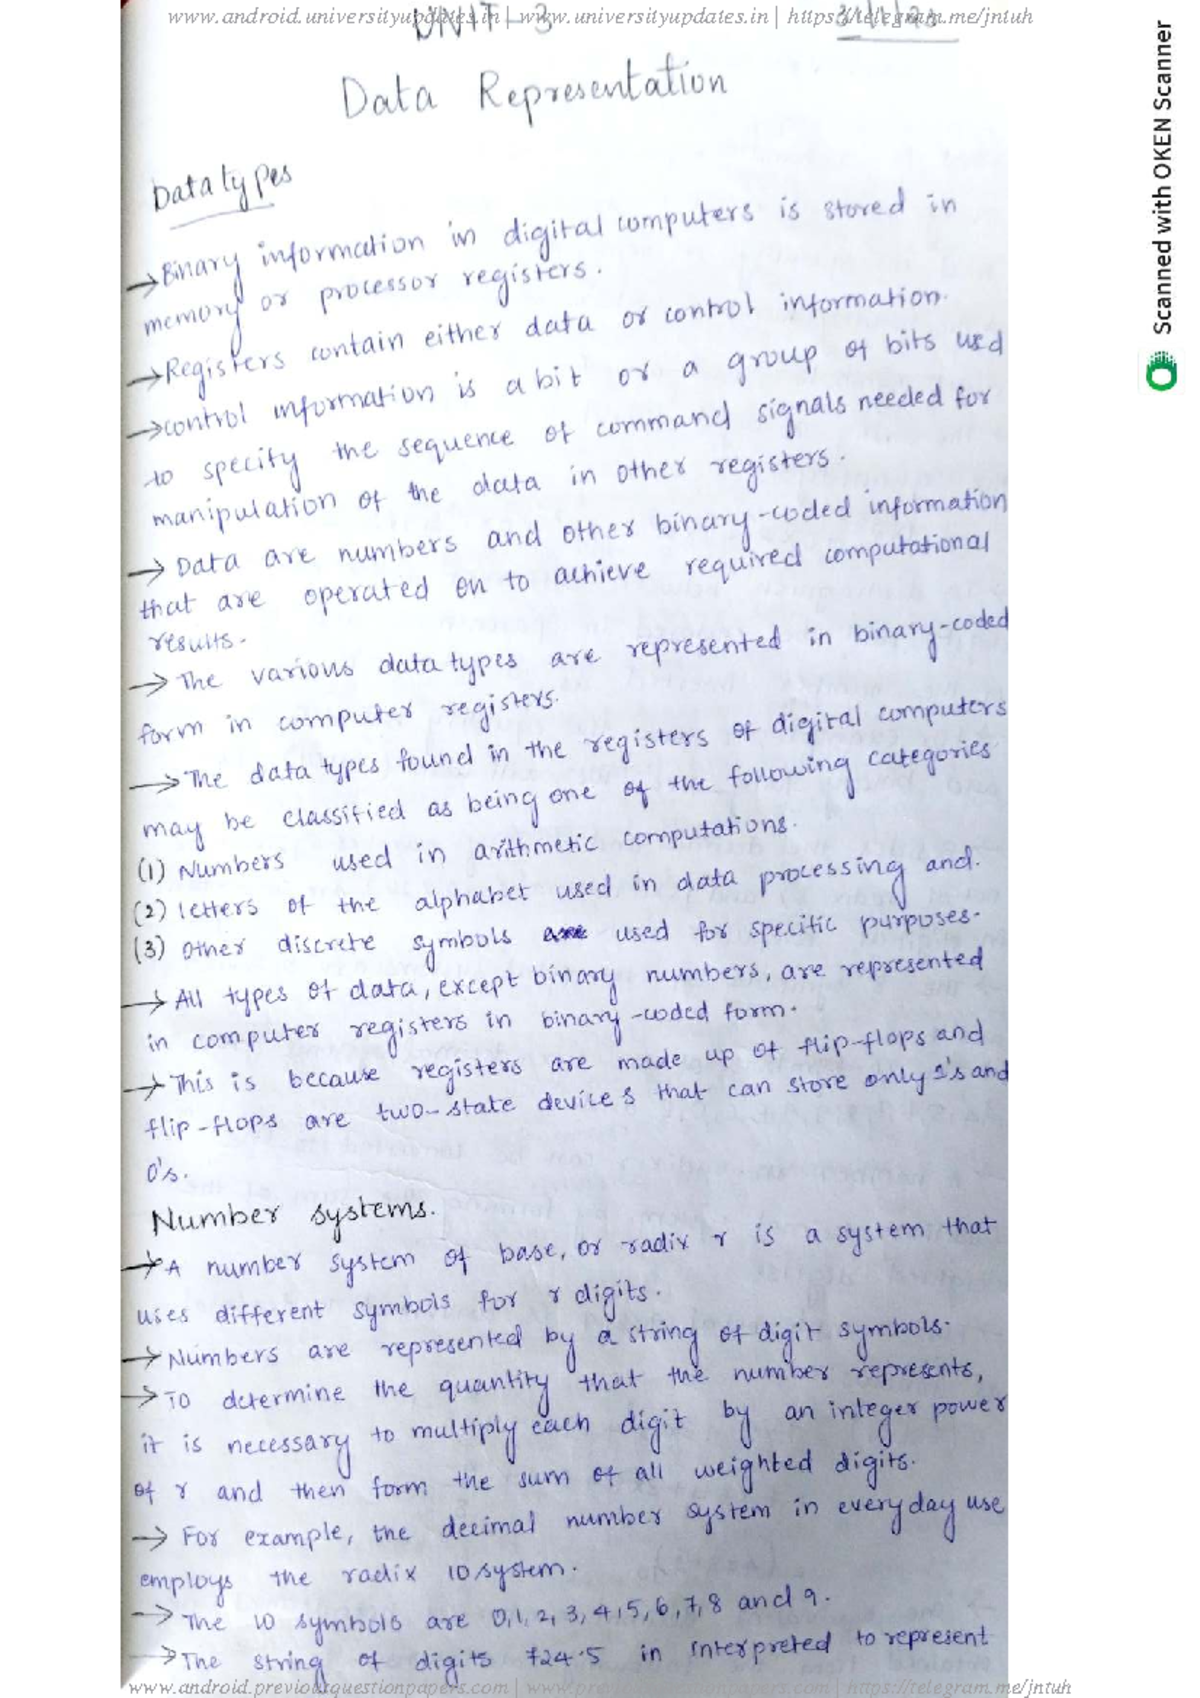 www.android.universityupdates.in | www.universityupdates.in | https://telegram.me/jntuh
UNIT-3
Data Representation
Data types
→Binary information in digital computers is stored in
memory or processor registers.
→Registers contain either data or control information.
→control information is a bit or a group of bits used
to specify the sequence of command signals needed for
manipulation of the data in other registers.
→ Data are numbers and other binary-coded information
that are operated on to achieve required computational
results.
→ The various data types are represented in binary-coded
form in computer registers.
→The data types found in the registers of digital computers
may be classified as being one of the following categories
(1) Numbers used in arithmetic computations.
(2) letters of the alphabet used in data processing and.
(3) other discrete symbols used for specific purposes.
→ All types of data, except binary numbers, are represented
in computer registers in binary-coded form.
→This is because registers are made up of flip-flops and
flip-flops are two-state devices that can store only 1's and
0's.
Number systems.
→A number system of base, or radix r is a system that
uses different symbols for r digits.
→Numbers are represented by a string of digit symbols.
→To determine the quantity that the number represents,
it is necessary to multiply each digit by an integer power
of r and then form the sum of all weighted digits.
→ For example, the decimal number system in everyday use
employs the radix 10 system.
→ The 10 symbols are 0,1,2,3,4,5,6,7,8 and 9.
→The string of digits 724.5 in interpreted to represent
www.android.previousquestionpapers.com | www.previousquestionpapers.com | https://telegram.me/jntuh
Scanned with OKEN Scanner